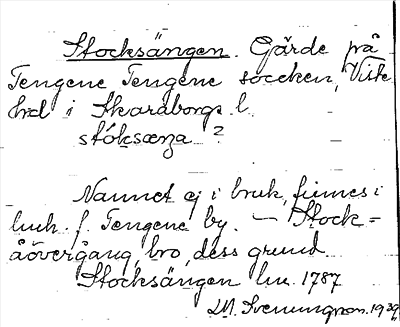 Stocksängen. Gärde på
Tengene Tengene socken, Viste
hd i Skaraborgs l.
stóksæŋa ?
Namnet ej i bruk, finnes i
luk. f. Tengene by. — Stock =
åövergång, bro, dess grund.
Stocksängen lm. 1787
LM. Svenungson. 1939